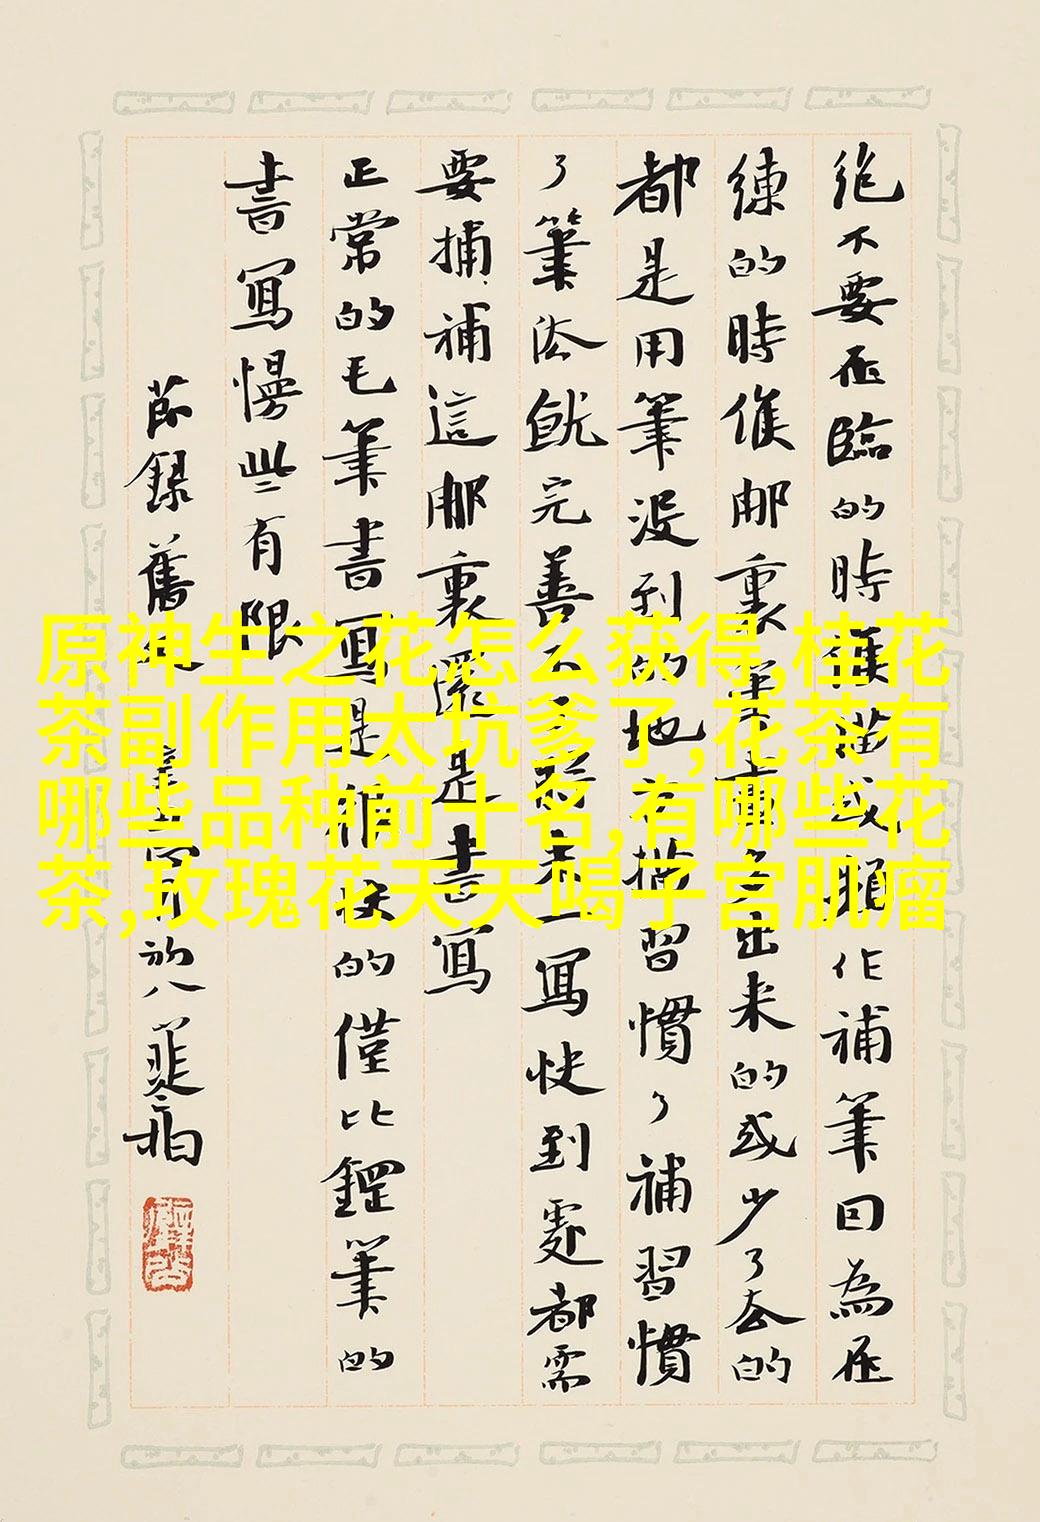 絶不要在臨的時候描或作補筆因為在
練的時候那裏出來的或少了去的
都是用筆没到的地方描習慣了補習慣
了筆法就完善不了将来一寫快到處都需
要捕補這那裏還是書寫
正常的毛筆書寫是很快的僅比鋼筆的
書寫慢些有限
節録舊
原神生之花怎么获得,桂花
茶副作用太坑爹了,花茶有
哪些品种前十名,有哪些花
茶,玫瑰花天天喝子宫肌瘤